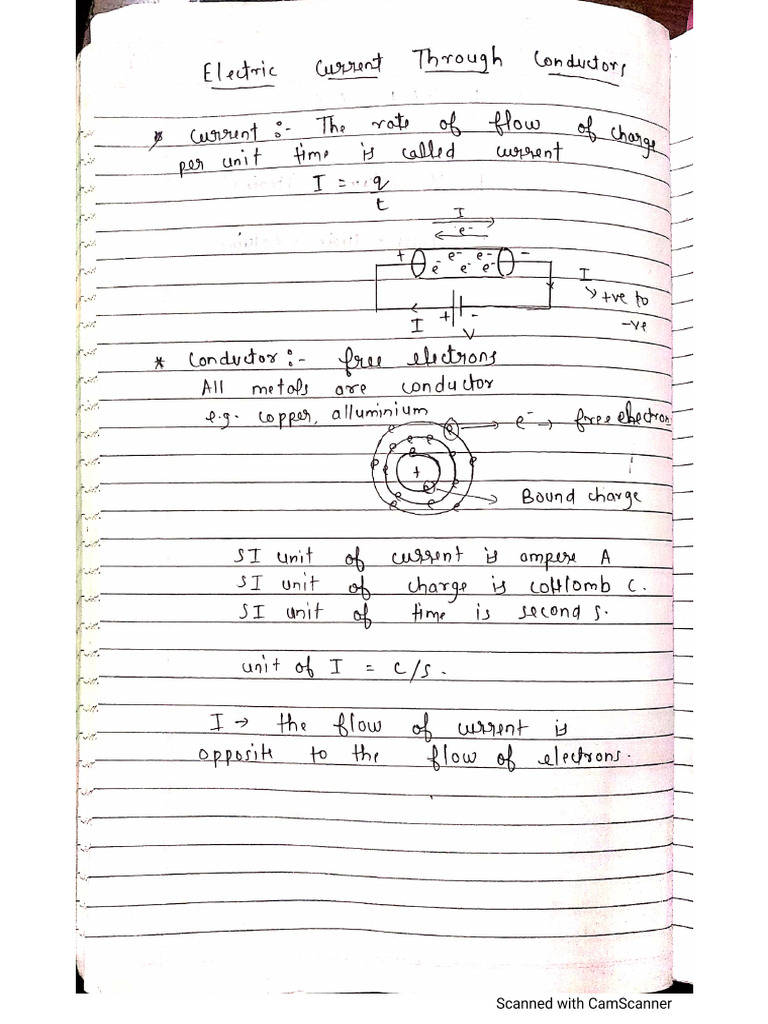 Electric Current Through Conductors
* Current :- The rate of flow of charge
per unit time is called current
I = q
t
I
e-
+ e- e- -
e- e- e-
I
→ +ve to
-ve
I + -
V
* Conductor :- free electrons
All metals are conductor
e.g. copper, alluminium
e e → e- → free electron
e e e
e e
e e
+
e e
e e e
→ Bound charge
SI unit of current is ampere A
SI unit of charge is coulomb C.
SI unit of time is second s.
unit of I = C/s.
I → the flow of current is
opposite to the flow of electrons.
Scanned with CamScanner